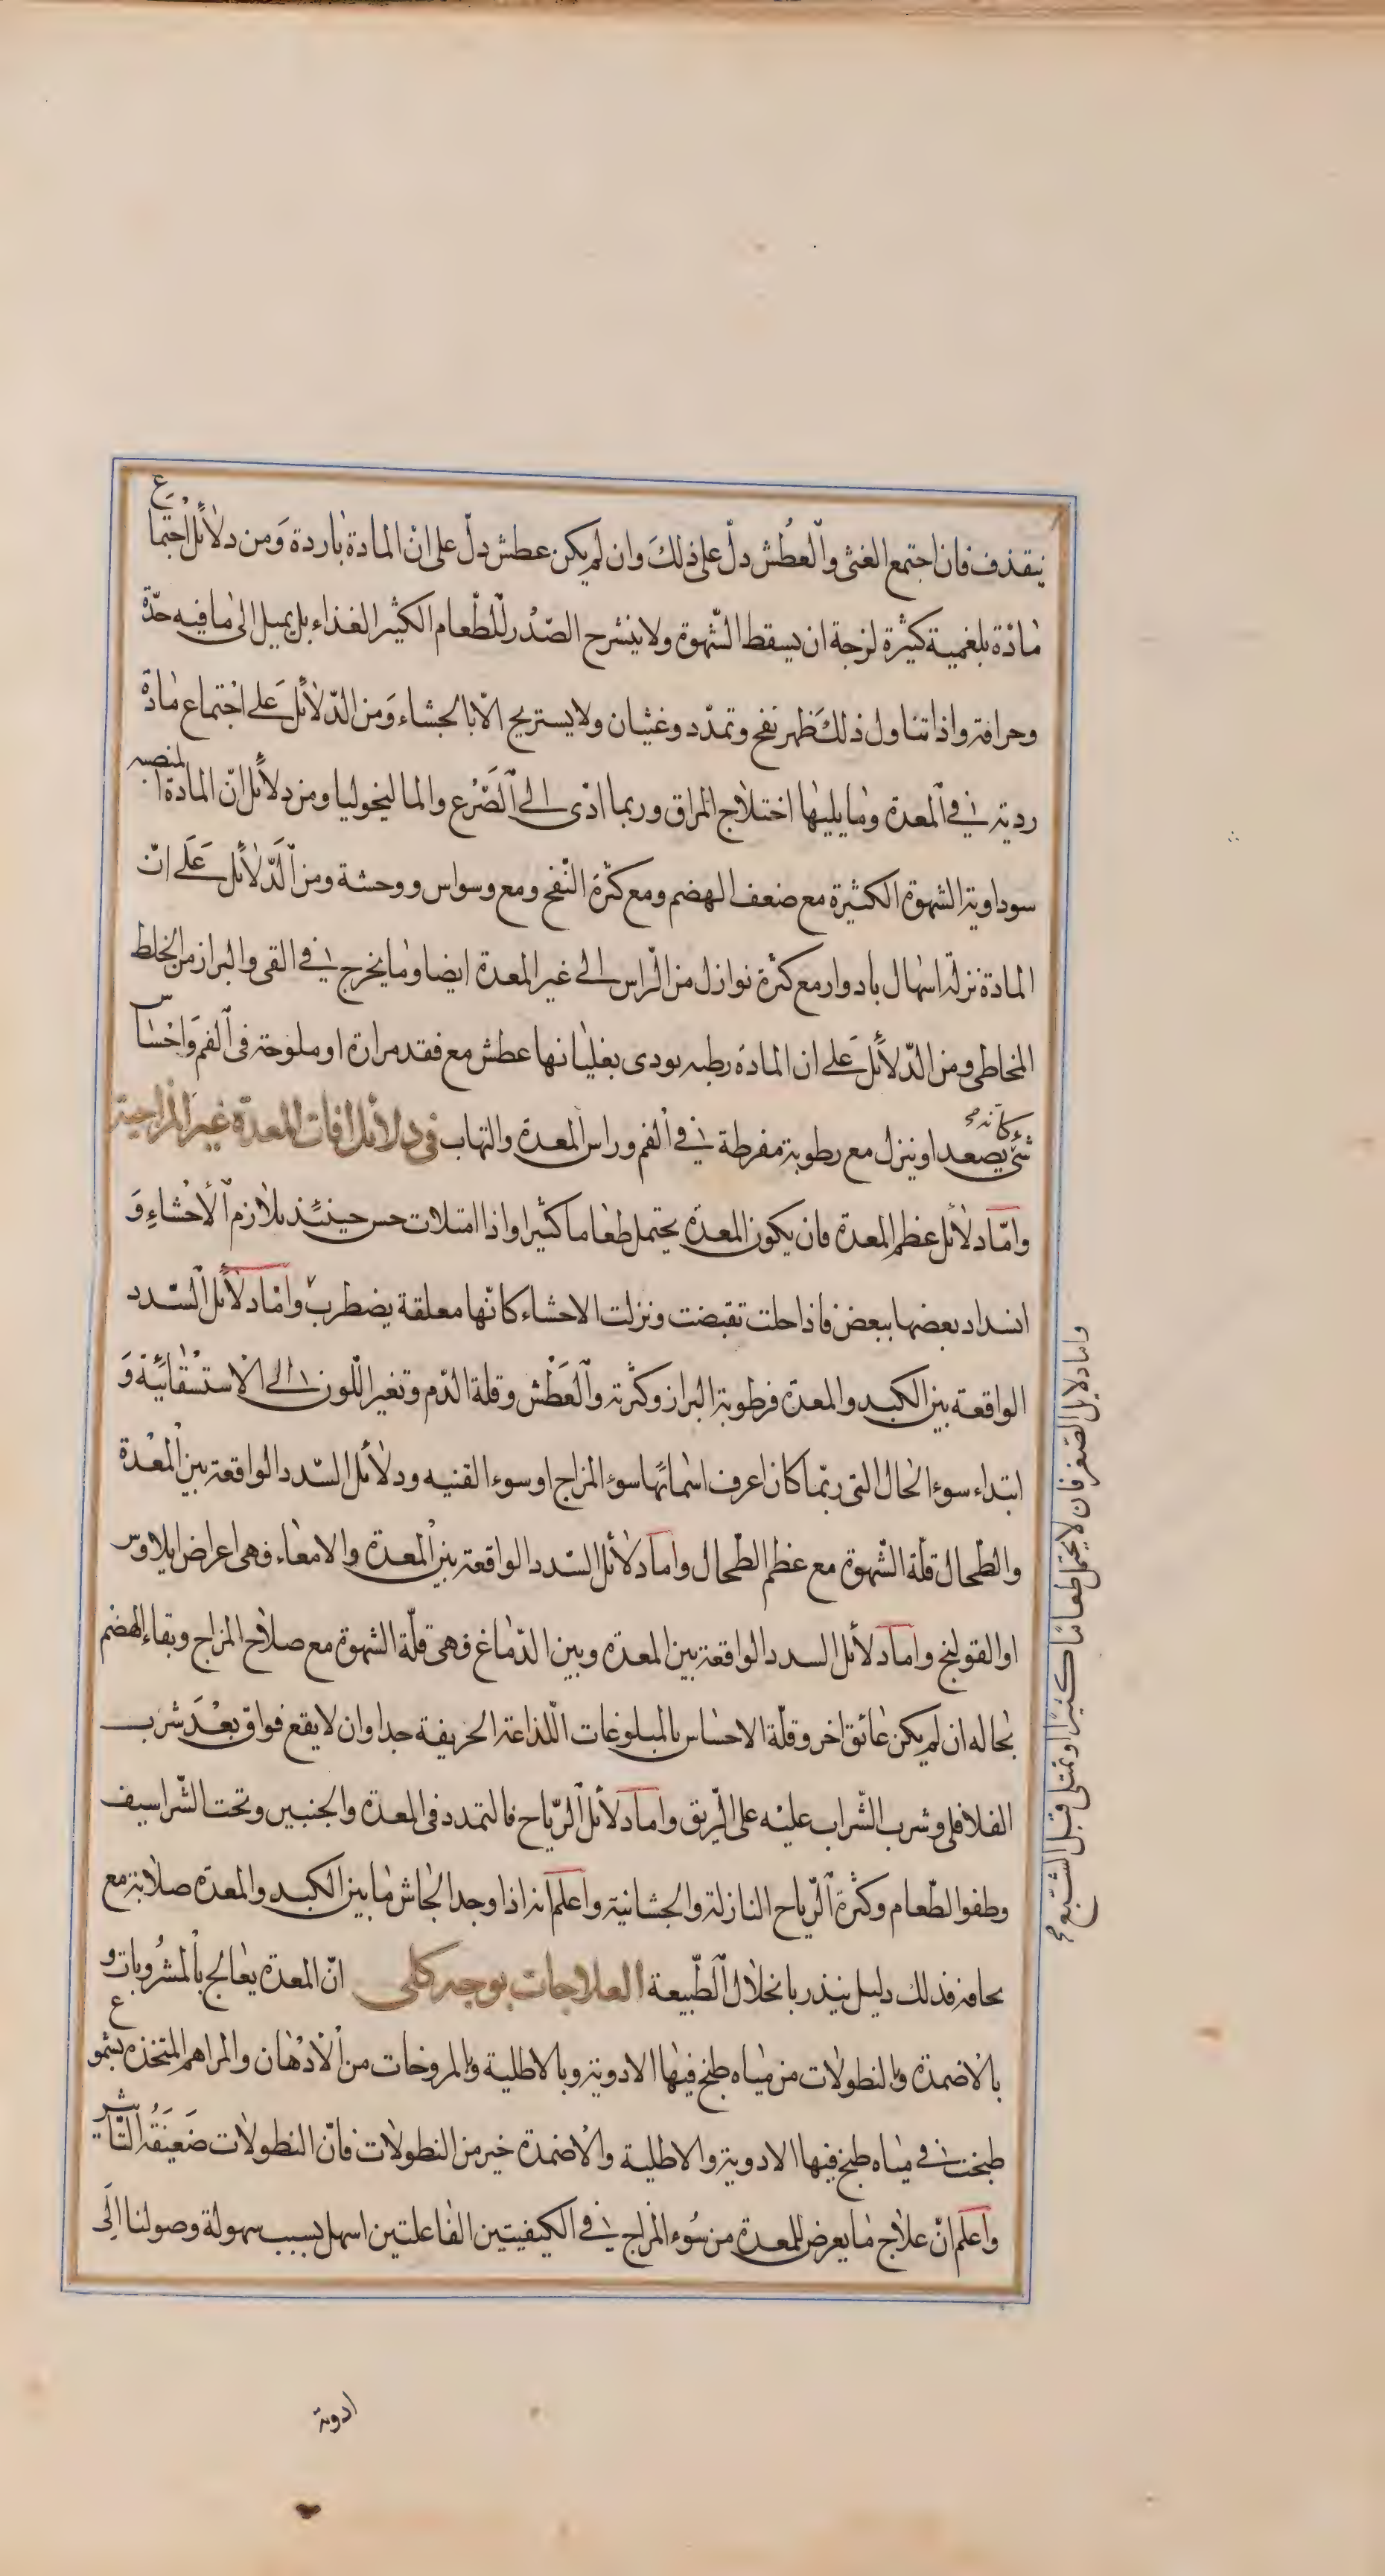 يتقذف فان اجتمع الغثى والعطش دلّ على ذلك وان لم يكن عطش دلّ على انّ المادة باردة ومن دلائل اجتماع
مادّة بلغمية كثيرة لزجة ان يسقط الشّهوة ولا ينشرح الصّدر للطّعام الكثير الغذاء بل يميل الى ما فيه حدّة
وحرافة واذا تناول ذلك ظهر نفخ وتمدّد وغثيان ولا يستريح الّا بالجشاء ومن الدّلائل على اجتماع مادّة
ردية في المعدة وما يليها اختلاج المراق وربما ادّى الى الصّرع والماليخوليا ومن دلائل انّ المادة المنصبه
سوداوية الشهوة الكثيرة مع ضعف الهضم ومع كثرة النّفخ ومع وسواس ووحشة ومن الدّلائل على انّ
المادة نزلة اسهال بادوار مع كثرة نوازل من الرّاس الى غير المعدة ايضا وما يخرج في القى والبراز من الخلط
المخاطى ومن الدّلائل على ان المادة رطبه يودى بغليانها عطش مع فقد مرارة او ملوحة فى الفم واحساس
شئ كانه يصعد او ينزل مع رطوبة مفرطة في الفم وراس المعدة والتهاب فى دلائل افات المعدة غير المزاجية
وامّا دلائل عظم المعدة فان يكون المعدة يحتمل طعاما كثيرا واذا امتلات حس حينئذ بلازم الأحشاء و
انسداد بعضها ببعض فاذا حلت تقبضت ونزلت الاحشاء كانّها معلقة يضطرب وامّا دلائل السّدد
الواقعة بين الكبد والمعدة فرطوبة البراز وكثرته والعطش وقلة الدّم وتغير اللّون الى الاستسقائيّة و
ابتداء سوء الحال التى ربّما كان اعرف اسمائها سوء المزاج او سوء القنيه ودلائل السّدد الواقعة بين المعدة
والطّحال قلّة الشّهوة مع عظم الطّحال واما دلائل السّدد الواقعة بين المعدة والامعاء فهى اعراض ايلاوس
او القولنج واما دلائل السدد الواقعة بين المعدة وبين الدّماغ فهى قلّة الشهوة مع صلاح المزاج وبقاء الهضم
بحاله ان لم يكن عائق اخر وقلّة الاحساس بالمبلوغات اللّذاعة الحريفة جدا وان لا يقع فواق بعد شرب
الفلافلى وشرب الشّراب عليه على الرّيق واما دلائل الرّياح فالتمدد فى المعدة والجنبين وتحت الشّراسيف
وطفو الطّعام وكثرة الرّياح النازلة والجشائية واعلم انه اذا وجد الجاش ما بين الكبد والمعدة صلابة مع
نحافة فذلك دليل ينذر بانحلال الطّبيعة العلاجات بوجه كلى انّ المعدة يعالج بالمشروبات و
بالاضمدة والنطولات من مياه طبخ فيها الادوية وبالاطلية والمروخات من الأدهان والمراهم المتخذه بشموع
طبخت في مياه طبخ فيها الادوية والاطلية والاضمدة خير من النطولات فانّ النطولات ضعيفة التّاثير
واعلم انّ علاج ما يعرض للمعدة من سوء المزاج في الكيفيتين الفاعلتين اسهل بسبب سهولة وصولنا الى
واما دلايل الصغر فان لا يحتمل طعاما كثيرا وتمتلى قبل الشبع
ادوية